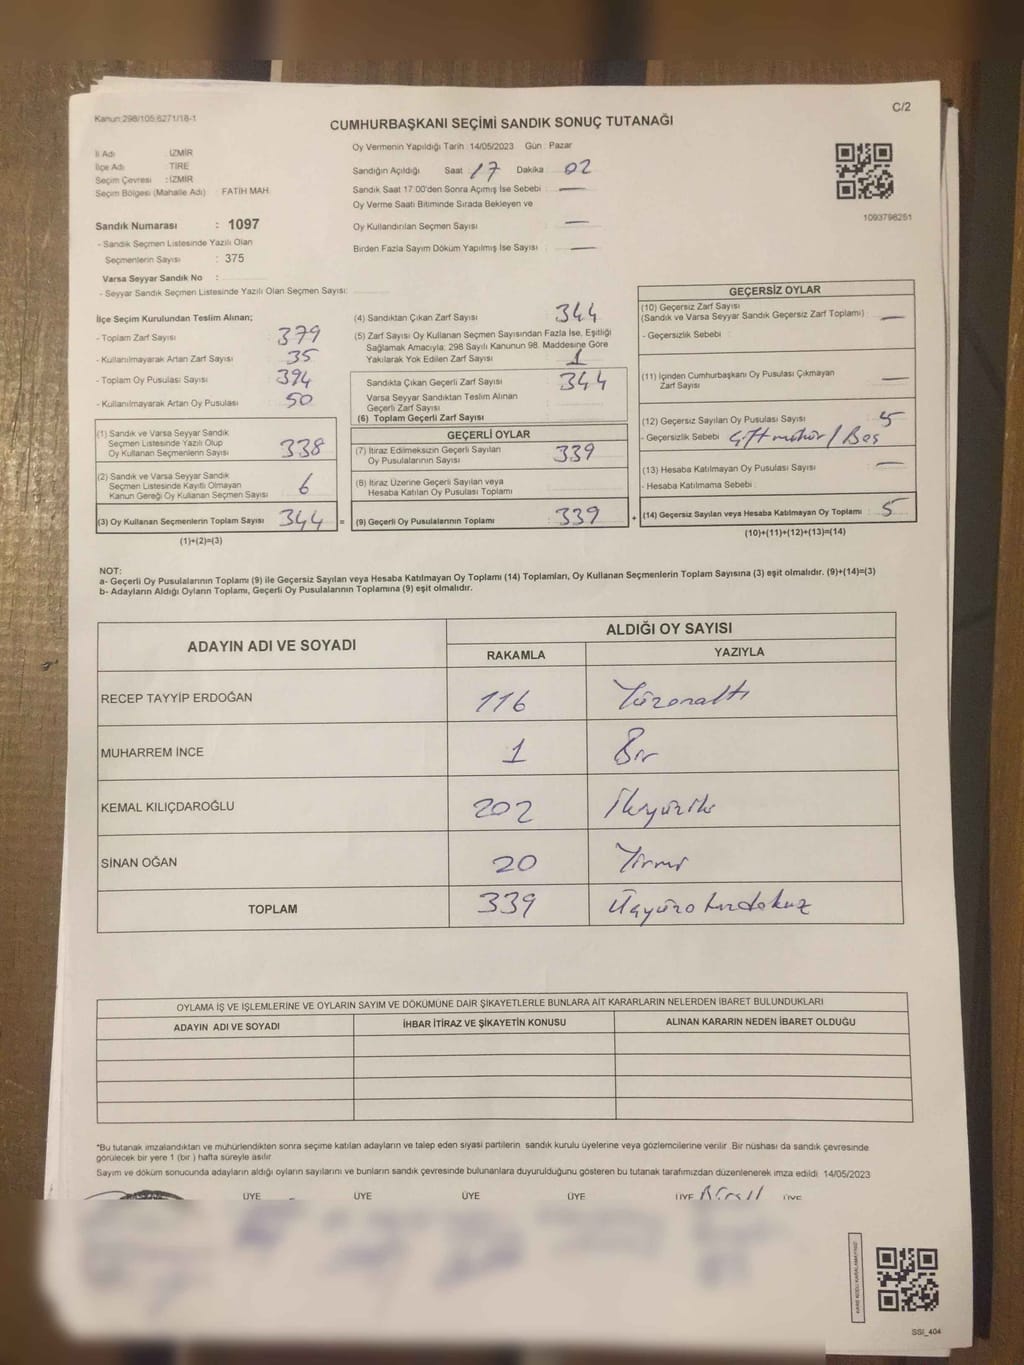 C/2
Kanun:298/105;6271/18-1
CUMHURBAŞKANI SEÇİMİ SANDIK SONUÇ TUTANAĞI
İl Adı : İZMİR
İlçe Adı : TİRE
Seçim Çevresi : İZMİR
Seçim Bölgesi (Mahalle Adı) : FATİH MAH.
Sandık Numarası : 1097
- Sandık Seçmen Listesinde Yazılı Olan
Seçmenlerin Sayısı : 375
Varsa Seyyar Sandık No :
- Seyyar Sandık Seçmen Listesinde Yazılı Olan Seçmen Sayısı:
Oy Vermenin Yapıldığı Tarih :14/05/2023 Gün : Pazar
Sandığın Açıldığı Saat 17 Dakika : 02
Sandık Saat 17:00'den Sonra Açımış İse Sebebi : —
Oy Verme Saati Bitiminde Sırada Bekleyen ve
Oy Kullandırılan Seçmen Sayısı : —
Birden Fazla Sayım Döküm Yapılmış İse Sayısı : —
1093796251
İlçe Seçim Kurulundan Teslim Alınan;
- Toplam Zarf Sayısı : 379
- Kullanılmayarak Artan Zarf Sayısı : 35
- Toplam Oy Pusulası Sayısı : 394
- Kullanılmayarak Artan Oy Pusulası : 50
(1) Sandık ve Varsa Seyyar Sandık
Seçmen Listesinde Yazılı Olup
Oy Kullanan Seçmenlerin Sayısı : 338
(2) Sandık ve Varsa Seyyar Sandık
Seçmen Listesinde Kayıtlı Olmayan
Kanun Gereği Oy Kullanan Seçmen Sayısı : 6
(3) Oy Kullanan Seçmenlerin Toplam Sayısı : 344 =
(1)+(2)=(3)
(4) Sandıktan Çıkan Zarf Sayısı : 344
(5) Zarf Sayısı Oy Kullanan Seçmen Sayısından Fazla İse, Eşitliği
Sağlamak Amacıyla; 298 Sayılı Kanunun 98. Maddesine Göre
Yakılarak Yok Edilen Zarf Sayısı :
Sandıkta Çıkan Geçerli Zarf Sayısı : 344
Varsa Seyyar Sandıktan Teslim Alınan
Geçerli Zarf Sayısı :
(6) Toplam Geçerli Zarf Sayısı :
GEÇERLİ OYLAR
(7) İtiraz Edilmeksizin Geçerli Sayılan
Oy Pusulalarının Sayısı : 339
(8) İtiraz Üzerine Geçerli Sayılan veya
Hesaba Katılan Oy Pusulası Toplamı :
(9) Geçerli Oy Pusulalarının Toplamı : 339 +
GEÇERSİZ OYLAR
(10) Geçersiz Zarf Sayısı
(Sandık ve Varsa Seyyar Sandık Geçersiz Zarf Toplamı) : —
- Geçersizlik Sebebi :
(11) İçinden Cumhurbaşkanı Oy Pusulası Çıkmayan
Zarf Sayısı : —
(12) Geçersiz Sayılan Oy Pusulası Sayısı : 5
- Geçersizlik Sebebi : Çift mühür / Beş
(13) Hesaba Katılmayan Oy Pusulası Sayısı : —
- Hesaba Katılmama Sebebi :
(14) Geçersiz Sayılan veya Hesaba Katılmayan Oy Toplamı : 5
(10)+(11)+(12)+(13)=(14)
NOT:
a- Geçerli Oy Pusulalarının Toplamı (9) ile Geçersiz Sayılan veya Hesaba Katılmayan Oy Toplamı (14) Toplamları, Oy Kullanan Seçmenlerin Toplam Sayısına (3) eşit olmalıdır. (9)+(14)=(3)
b- Adayların Aldığı Oyların Toplamı, Geçerli Oy Pusulalarının Toplamına (9) eşit olmalıdır.
ADAYIN ADI VE SOYADI
ALDIĞI OY SAYISI
RAKAMLA YAZIYLA
RECEP TAYYİP ERDOĞAN 116 Yüzonaltı
MUHARREM İNCE 1 Bir
KEMAL KILIÇDAROĞLU 202 İkiyüziki
SİNAN OĞAN 20 Yirmi
TOPLAM 339 Üçyüzotuzdokuz
OYLAMA İŞ VE İŞLEMLERİNE VE OYLARIN SAYIM VE DÖKÜMÜNE DAİR ŞİKAYETLERLE BUNLARA AİT KARARLARIN NELERDEN İBARET BULUNDUKLARI
ADAYIN ADI VE SOYADI İHBAR İTİRAZ VE ŞİKAYETİN KONUSU ALINAN KARARIN NEDEN İBARET OLDUĞU
*Bu tutanak imzalandıktan ve mühürlendikten sonra seçime katılan adayların ve talep eden siyasi partilerin sandık kurulu üyelerine veya gözlemcilerine verilir. Bir nüshası da sandık çevresinde
görülecek bir yere 1 (bir ) hafta süreyle asılır
Sayım ve döküm sonucunda adayların aldığı oyların sayılarını ve bunların sandık çevresinde bulunanlara duyurulduğunu gösteren bu tutanak tarafımızdan düzenlenerek imza edildi. 14/05/2023
BAŞKAN ÜYE ÜYE ÜYE ÜYE ÜYE ÜYE
KARE KODU KARALAMAYINIZ!
SSI_404